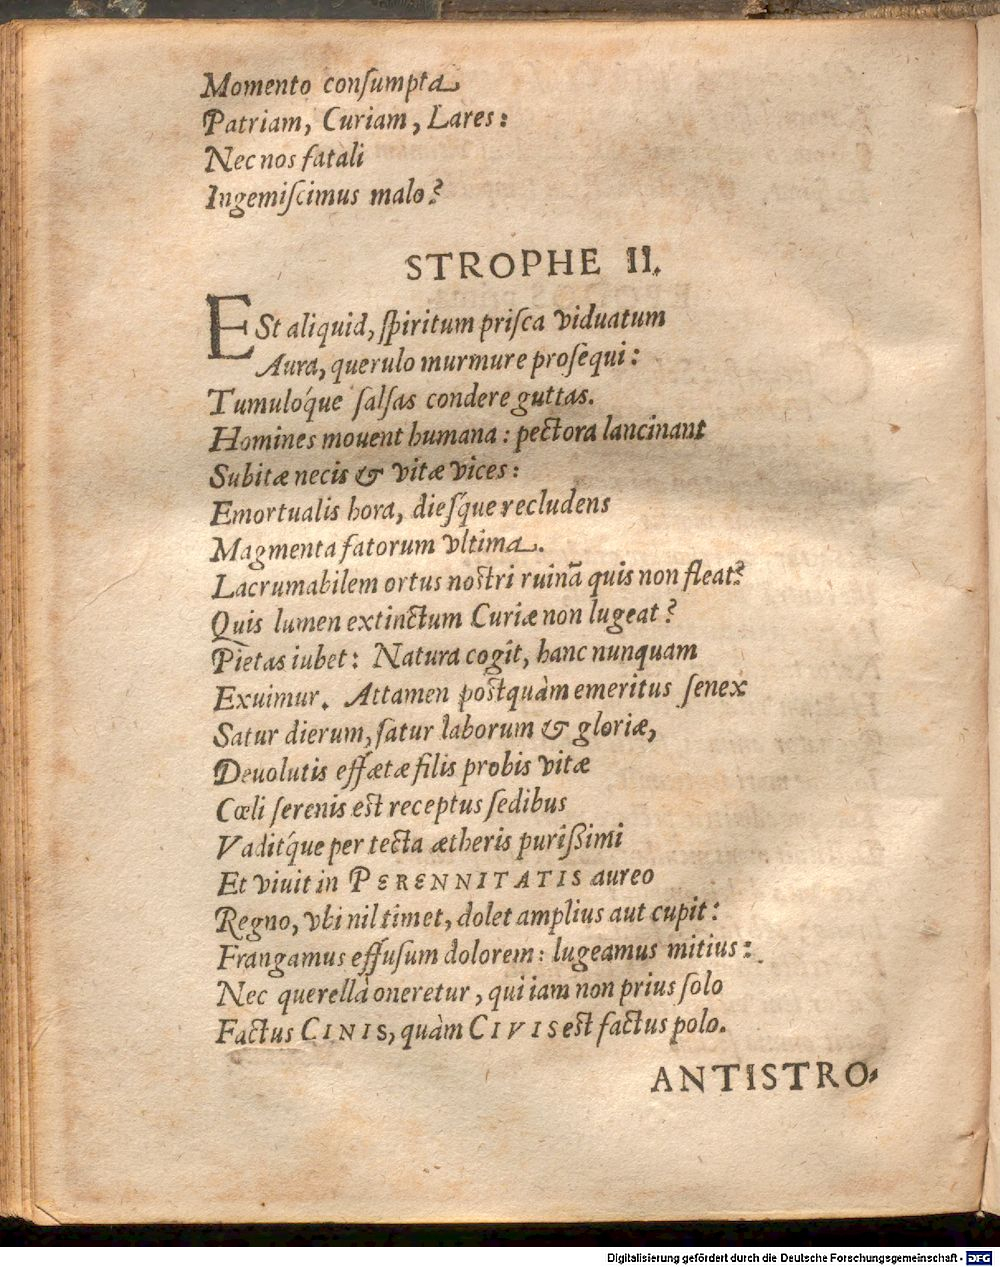 Momento conſumpta
Patriam, Curiam, Lares:
Nec nos fatali
Ingemiſcimus malo?
STROPHE II.
ESt aliquid, ſpiritum priſca viduatum
Aura, querulo murmure proſequi:
Tumulóque ſalſas condere guttas.
Homines mouent humana: pectora lancinant
Subitæ necis & vitæ vices:
Emortualis hora, dieſq́ue recludens
Magmenta fatorum vltima.
Lacrumabilem ortus noſtri ruinã quis non fleat?
Quis lumen extinctum Curiæ non lugeat?
Pietas iubet: Natura cogit, hanc nunquam
Exuimur. Attamen poſtquàm emeritus ſenex
Satur dierum, ſatur laborum & gloriæ,
Deuolutis effætæ filis probis vitæ
Cœli ſerenis eſt receptus ſedibus
Vaditq́ue per tecta ætheris puriſsimi
Et viuit in PERENNITATIS aureo
Regno, vbi nil timet, dolet amplius aut cupit:
Frangamus effuſum dolorem: lugeamus mitius:
Nec querellà oneretur, qui iam non prius ſolo
Factus CINIS, quàm CIVIS eſt factus polo.
ANTISTRO-
Digitalisierung gefördert durch die Deutsche Forschungsgemeinschaft - DFG